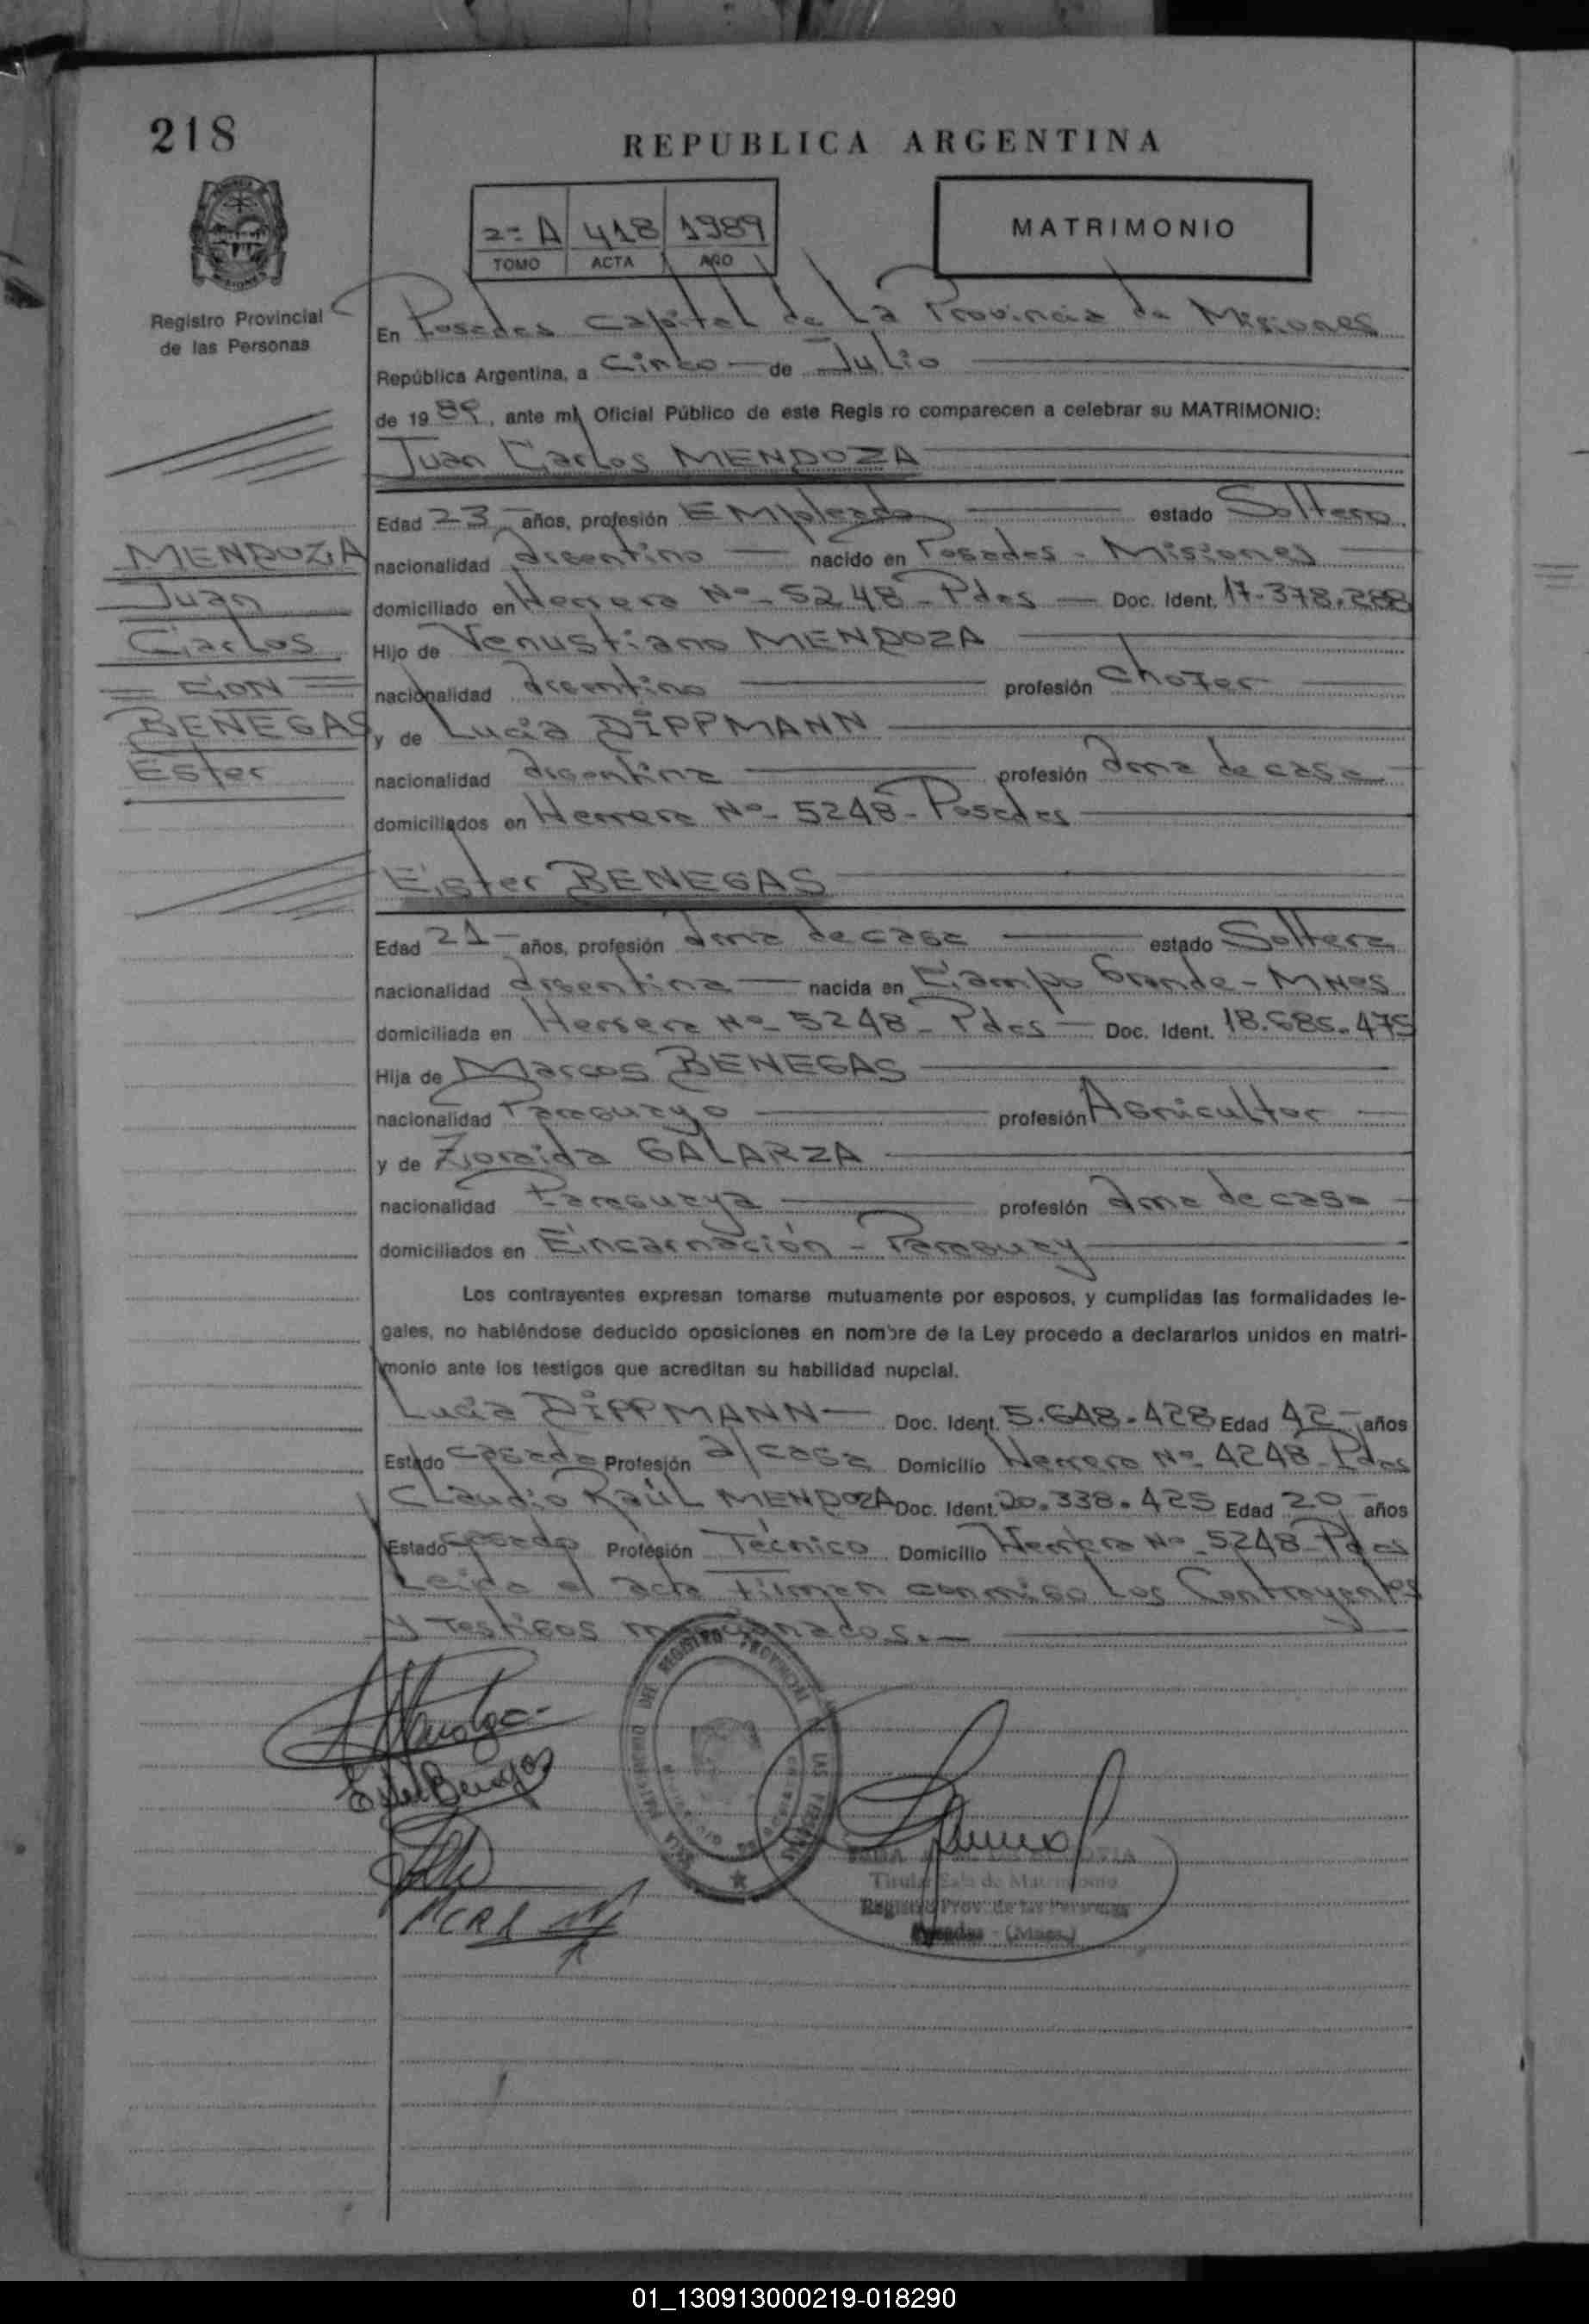 218
REPUBLICA ARGENTINA
2º A 418 1989
TOMO ACTA AÑO
MATRIMONIO
Registro Provincial
de las Personas
En Posadas Capital de La Provincia de Misiones
República Argentina, a Cinco de Julio
de 1989, ante mi Oficial Público de este Regis ro comparecen a celebrar su MATRIMONIO:
Juan Carlos MENDOZA
Edad 23 años, profesión Empleado estado Soltero
nacionalidad Argentino nacido en Posadas - Misiones
domiciliado en Herrera Nº 5248 - Pdas Doc. Ident. 17.378.288
Hijo de Venustiano MENDOZA
nacionalidad Argentino profesión Chofer
y de Lucia DIPPMANN
nacionalidad Argentina profesión Ama de casa
domiciliados en Herrera Nº 5248 - Posadas
MENDOZA
Juan
Carlos
= CON =
BENEGAS
Ester
Ester BENEGAS
Edad 21 años, profesión Ama de casa estado Soltera
nacionalidad Argentina nacida en Campo Grande - Mnes
domiciliada en Herrera Nº 5248 - Pdas Doc. Ident. 18.686.475
Hija de Marcos BENEGAS
nacionalidad Paraguayo profesión Agricultor
y de Zoraida GALARZA
nacionalidad Paraguaya profesión Ama de casa
domiciliados en Encarnación - Paraguay
Los contrayentes expresan tomarse mutuamente por esposos, y cumplidas las formalidades le-
gales, no habiéndose deducido oposiciones en nombre de la Ley procedo a declararlos unidos en matri-
monio ante los testigos que acreditan su habilidad nupcial.
Lucia DIPPMANN Doc. Ident. 5.648.428 Edad 42 años
Estado casada Profesión a/casa Domicilio Herrera Nº 4248 - Pdas
Claudio Raúl MENDOZA Doc. Ident. 20.338.425 Edad 20 años
Estado casado Profesión Técnico Domicilio Herrera Nº 5248 - Pdas
Leida el acta Firman conmigo Los Contrayentes
y testigos mencionados.
Ester Benegas
SALA MATRIMONIO DEL REGISTRO PROVINCIAL DE LAS PERSONAS
Titular Sala de Matrimonio
Registro Prov. de las Personas
Posadas - (Mnes.)
01_130913000219-018290